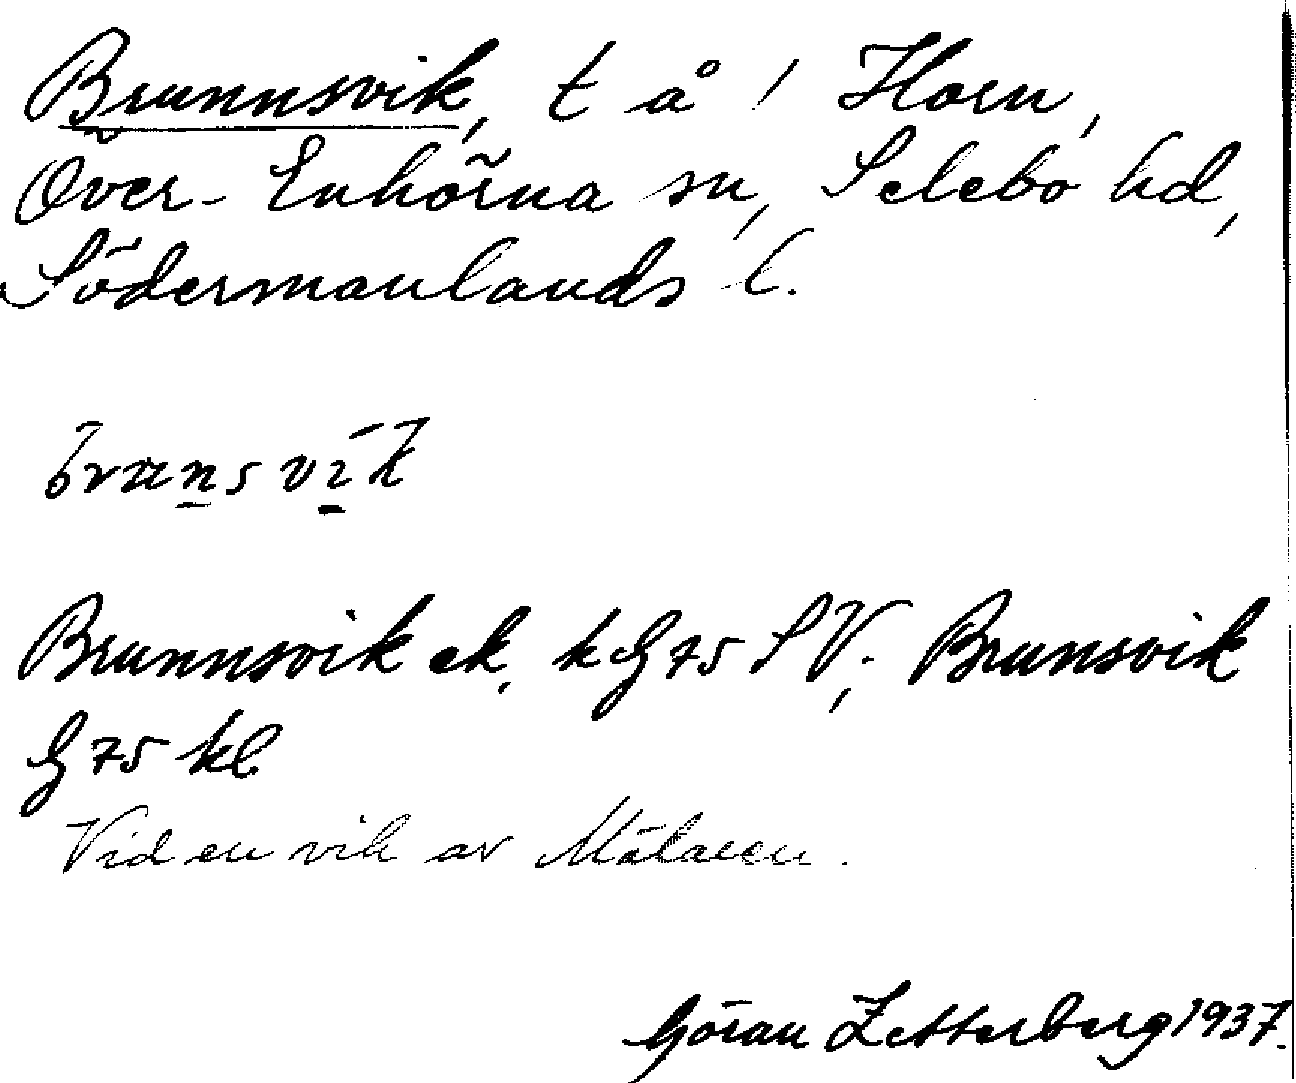 Brunnsvik, t å 1 Horn,
Över-Enhörna sn, Selebo hd,
Södermanlands l.
brunsvik
Brunnsvik ek. k G 75 SV; Brunsvik
G 75 kl
Vid en vik av Mälaren.
Göran Zetterberg 1937.